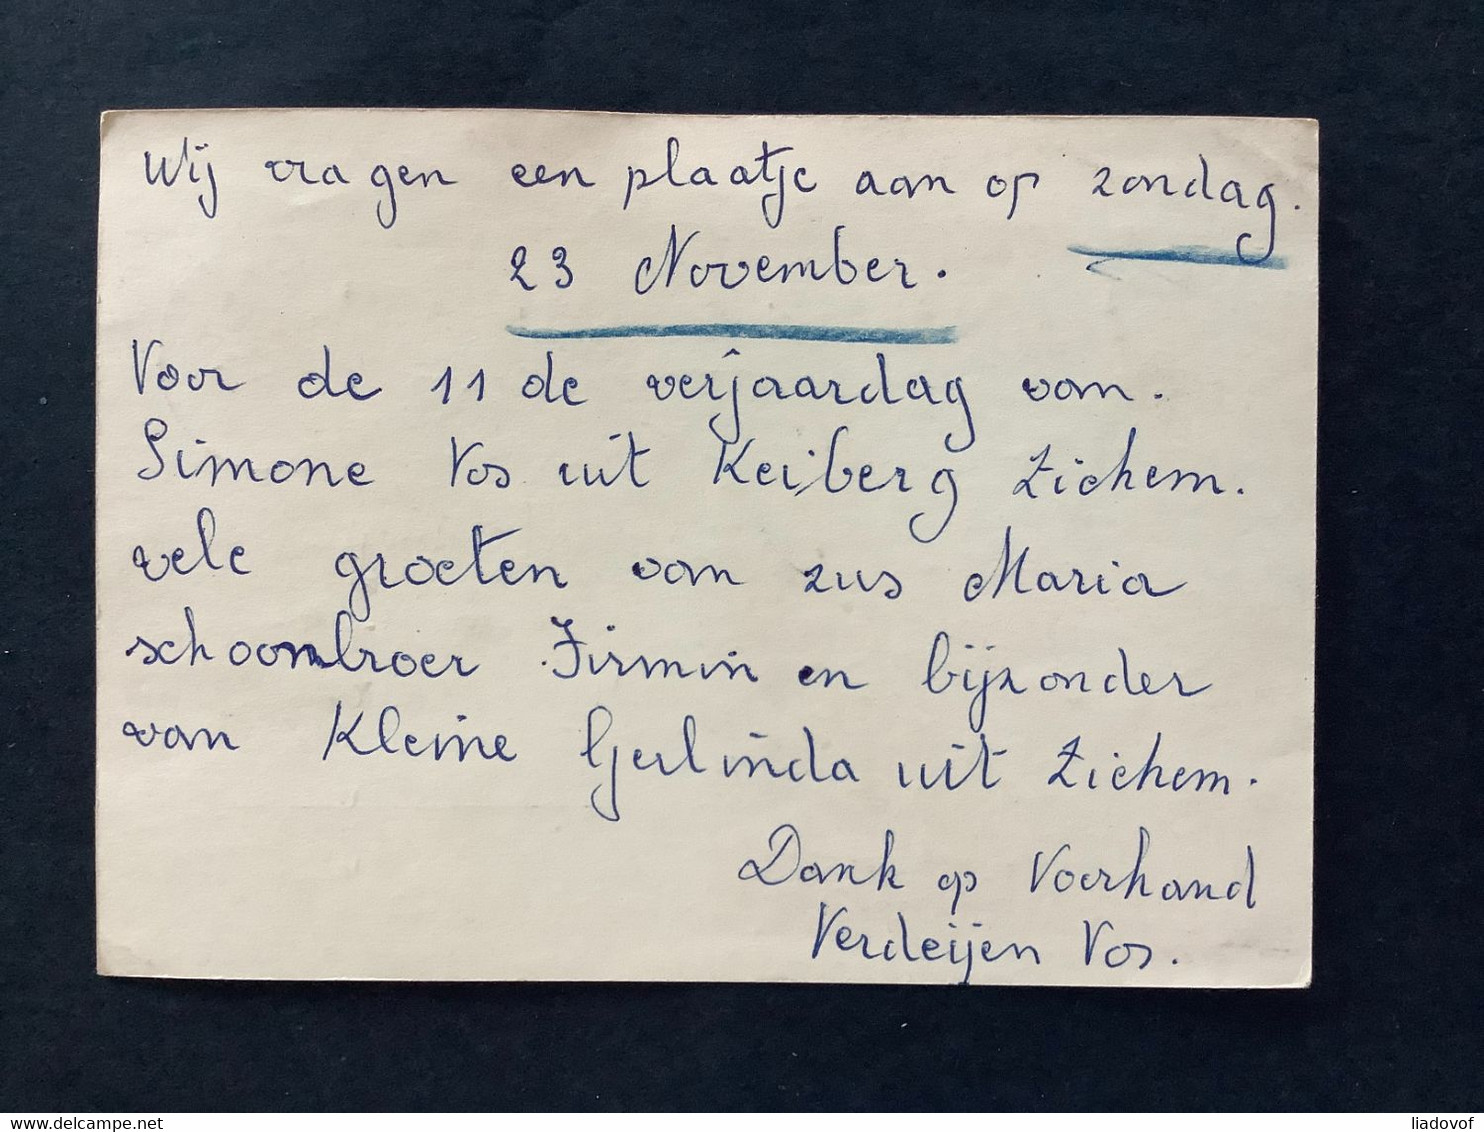 Wij vragen een plaatje aan op zondag.
23 November.
Voor de 11 de verjaardag van.
Simone Vos uit Keiberg Zichem.
vele groeten van zus Maria
schoonbroer Firmin en bijzonder
van Kleine Gerlinda uit Zichem.
Dank op Voorhand
Verdeijen Vos.
delcampe.net
liadovof